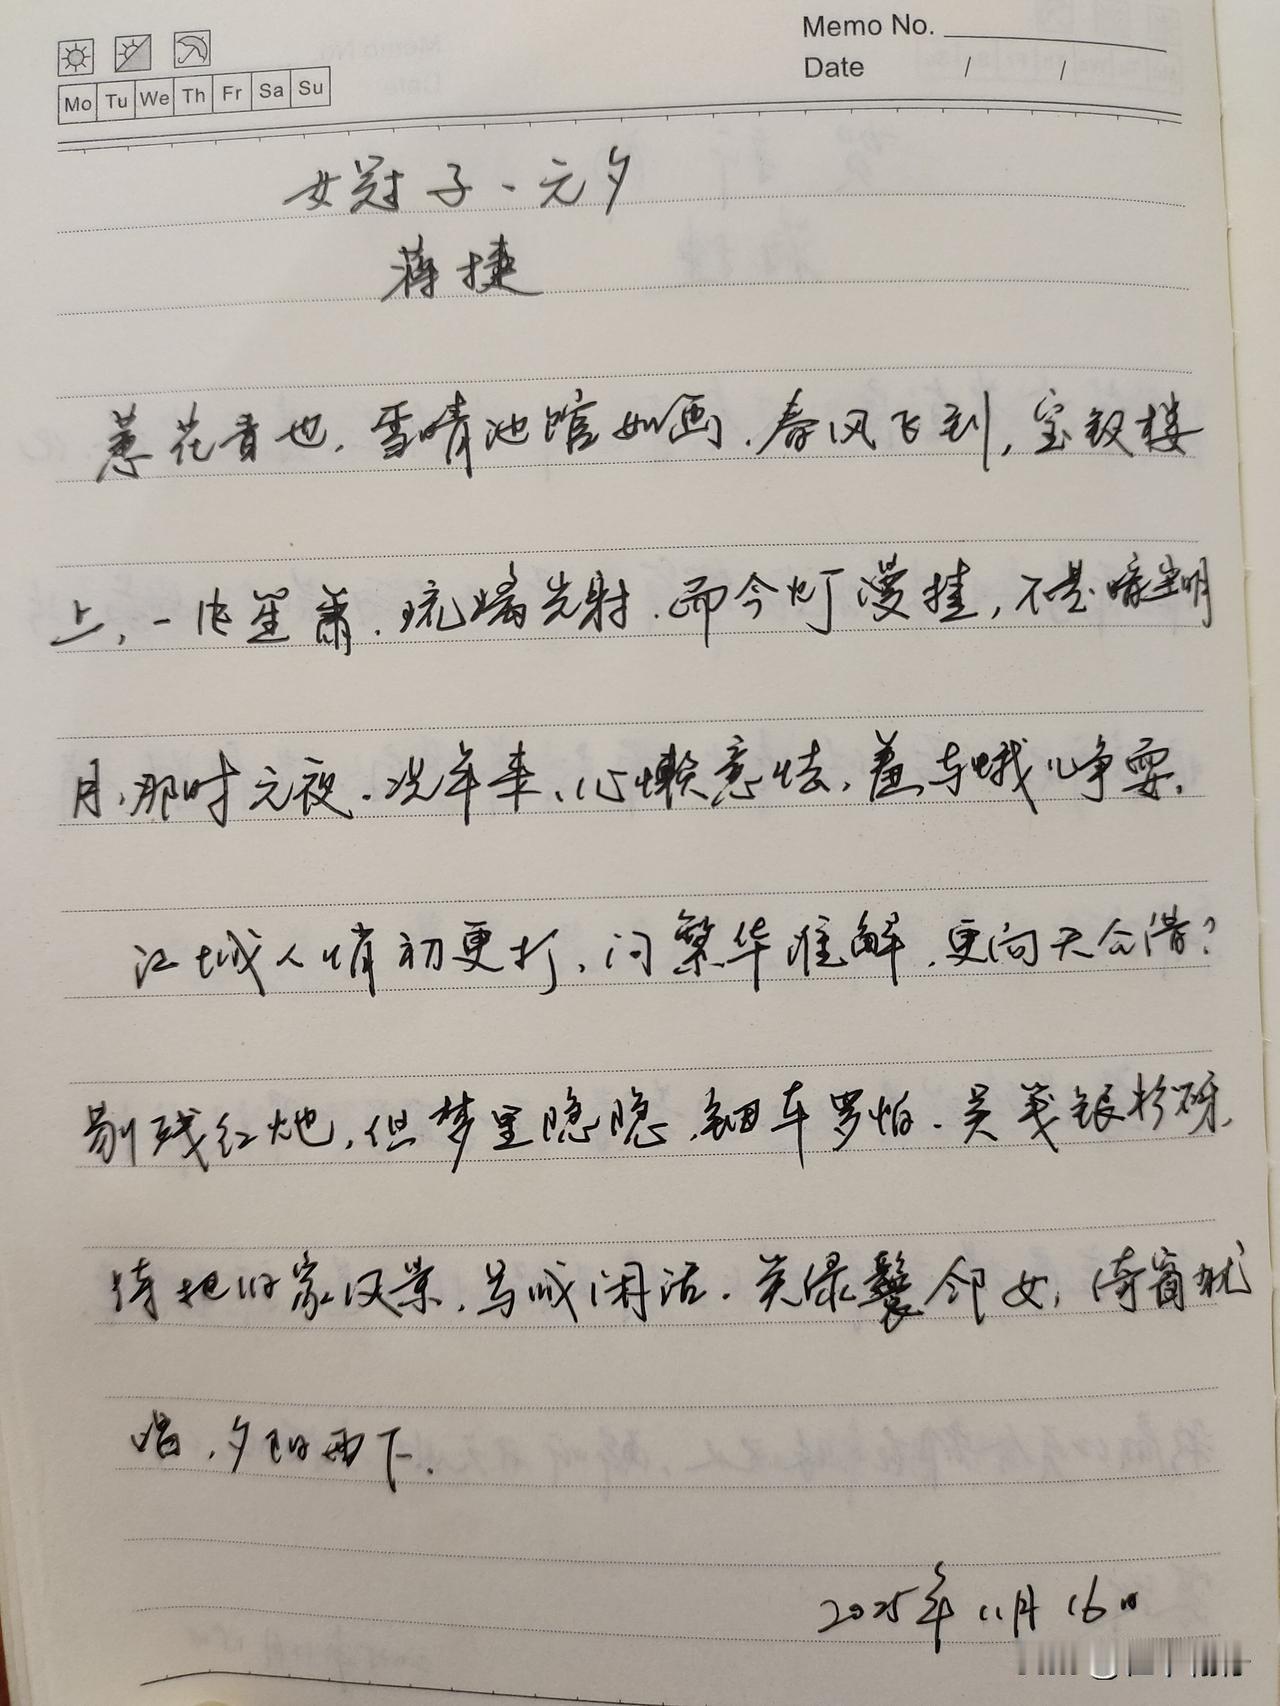 Memo No.
Mo Tu We Th Fr Sa Su
Date / /
女冠子·元夕
蒋捷
蕙花香也,雪晴池馆如画.春风飞到,宝钗楼
上,一片笙萧,琉璃光射.而今灯漫挂,不是暗尘明
月,那时元夜.况年来、心懒意怯,羞与蛾儿争耍.
江城人悄初更打,问繁华谁解,更向天公借?
剔残红灺,但梦里隐隐,钿车罗帕.吴笺银粉砑,
待把旧家风景,写成闲话.笑绿鬟邻女,倚窗犹
唱,夕阳西下.
2025年11月16日